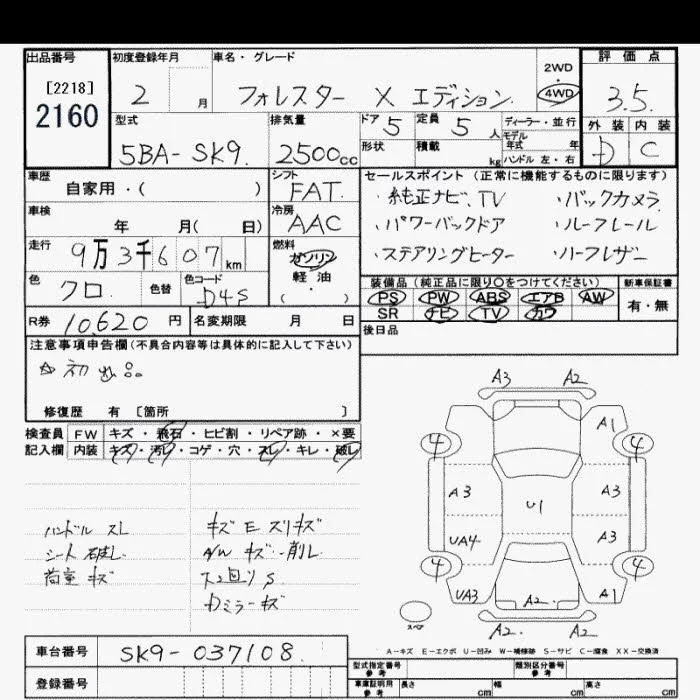 出品番号
[2218]
2160
初度登録年月
2 月
車名・グレード
フォレスター X エディション
2WD
・
4WD
評価点
3.5
外装 内装
D C
型式
5BA-SK9
排気量
2500cc
ドア 5
定員 5 人
形状
積載 kg
ディーラー・並行
モデル
年式 年
ハンドル 左・右
車歴
自家用・( )
シフト
FAT
車検
年 月( 日)
冷房
AAC
走行
9万3千607km
燃料
ガソリン
軽・油
( )
色
クロ
色替
色コード
D4S
R券 10,620 円
名変期限 月 日
セールスポイント(正常に機能するものに限ります)
・純正ナビ、TV ・バックカメラ
・パワーバックドア ・ルーフレール
・ステアリングヒーター ・ハーフレザー
装備品(純正品に限り〇をつけてください)
PS PW ABS エアB AW
SR ナビ TV カワ
新車保証書
有・無
後日品
注意事項申告欄(不具合内容等は具体的に記入して下さい)
修復歴 有 [箇所 ]
検査員
記入欄
FW キズ・飛石・ヒビ割・リペア跡・×要
内装 キズ・汚レ・コゲ・穴・スレ・キレ・破レ
ハンドル スレ
シート 破レ
荷室 キズ
キズ E スリキズ
A/W キズ・削レ
下回り S
Dミラーキズ
A3 A2
A1
4 4
A3 U1 A3
UA4 A3
4 4
UA3 A2 A1
A2 A2
スペア
A-キズ E-エクボ U-凹み W-補修跡 S-サビ C-腐食 XX-交換済
車台番号 SK9-037108
登録番号
型式指定番号
参考
類別区分番号
参考
車庫証明用
参考
長さ cm 幅 cm 高さ cm